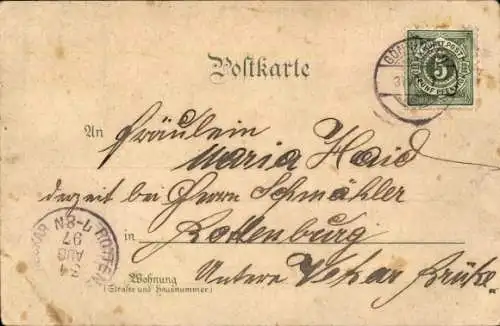 Postkarte
An Fräulein
Maria Haid
derzeit bei Herrn Schmähler
in Rottenburg
Wohnung
(Straße und Hausnummer)
Untere Nekar Brüke
5
31
ROTTEN
7-8N
97
AUG